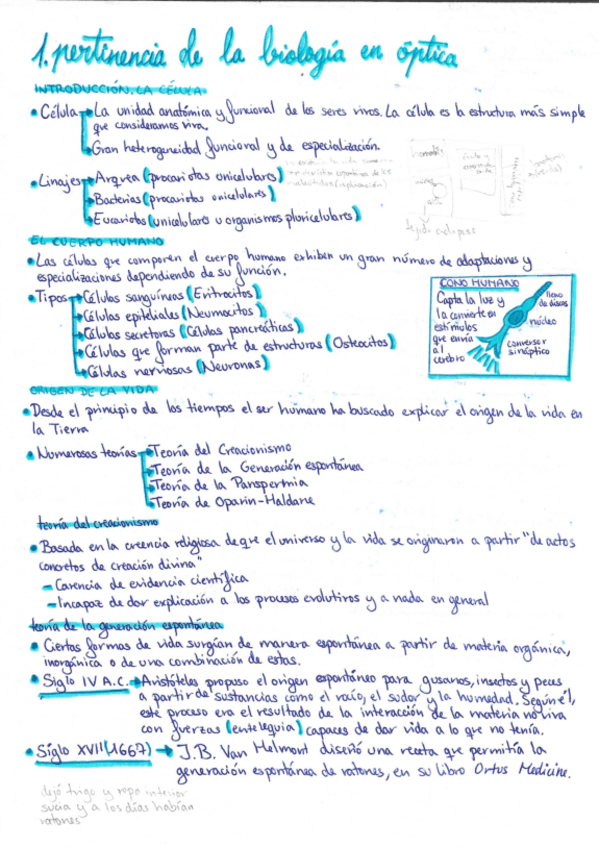 1. pertinencia de la biología en óptica
INTRODUCCIÓN. LA CÉLULA
• Célula → La unidad anatómica y funcional de los seres vivos. La célula es la estructura más simple
que consideramos viva.
→ Gran heterogeneidad funcional y de especialización.
• Linajes → Arquea (procariotas unicelulares)
→ Bacterias (procariotas unicelulares)
→ Eucariotas (unicelulares u organismos pluricelulares)
EL CUERPO HUMANO
• Las células que componen el cuerpo humano exhiben un gran número de adaptaciones y
especializaciones dependiendo de su función.
• Tipos → Células sanguíneas (Eritrocitos)
→ Células epiteliales (Neumocitos)
→ Células secretoras (Células pancreáticas)
→ Células que forman parte de estructuras (Osteocitos)
→ Células nerviosas (Neuronas)
CONO HUMANO
Capta la luz y
la convierte en
estímulos
que envía
al
cerebro
lleno
de discos
núcleo
conversor
sináptico
ORIGEN DE LA VIDA
• Desde el principio de los tiempos el ser humano ha buscado explicar el origen de la vida en
la Tierra
• Numerosas teorías → Teoría del Creacionismo
→ Teoría de la Generación espontánea
→ Teoría de la Panspermia
→ Teoría de Oparin-Haldane
teoría del creacionismo
• Basada en la creencia religiosa de que el universo y la vida se originaron a partir "de actos
concretos de creación divina"
– Carencia de evidencia científica
– Incapaz de dar explicación a los procesos evolutivos y a nada en general
teoría de la generación espontánea
• Ciertas formas de vida surgían de manera espontánea a partir de materia orgánica,
inorgánica o de una combinación de estas.
• Siglo IV A.C. → Aristóteles propuso el origen espontáneo para gusanos, insectos y peces
a partir de sustancias como el rocío, el sudor y la humedad. Según él,
este proceso era el resultado de la interacción de la materia no viva
con fuerzas (entelequia) capaces de dar vida a lo que no tenía.
• Siglo XVII (1667) → J.B. Van Helmont diseñó una receta que permitía la
generación espontánea de ratones, en su libro Ortus Medicine.
dejó trigo y ropa interior
sucia y a los días habían
ratones